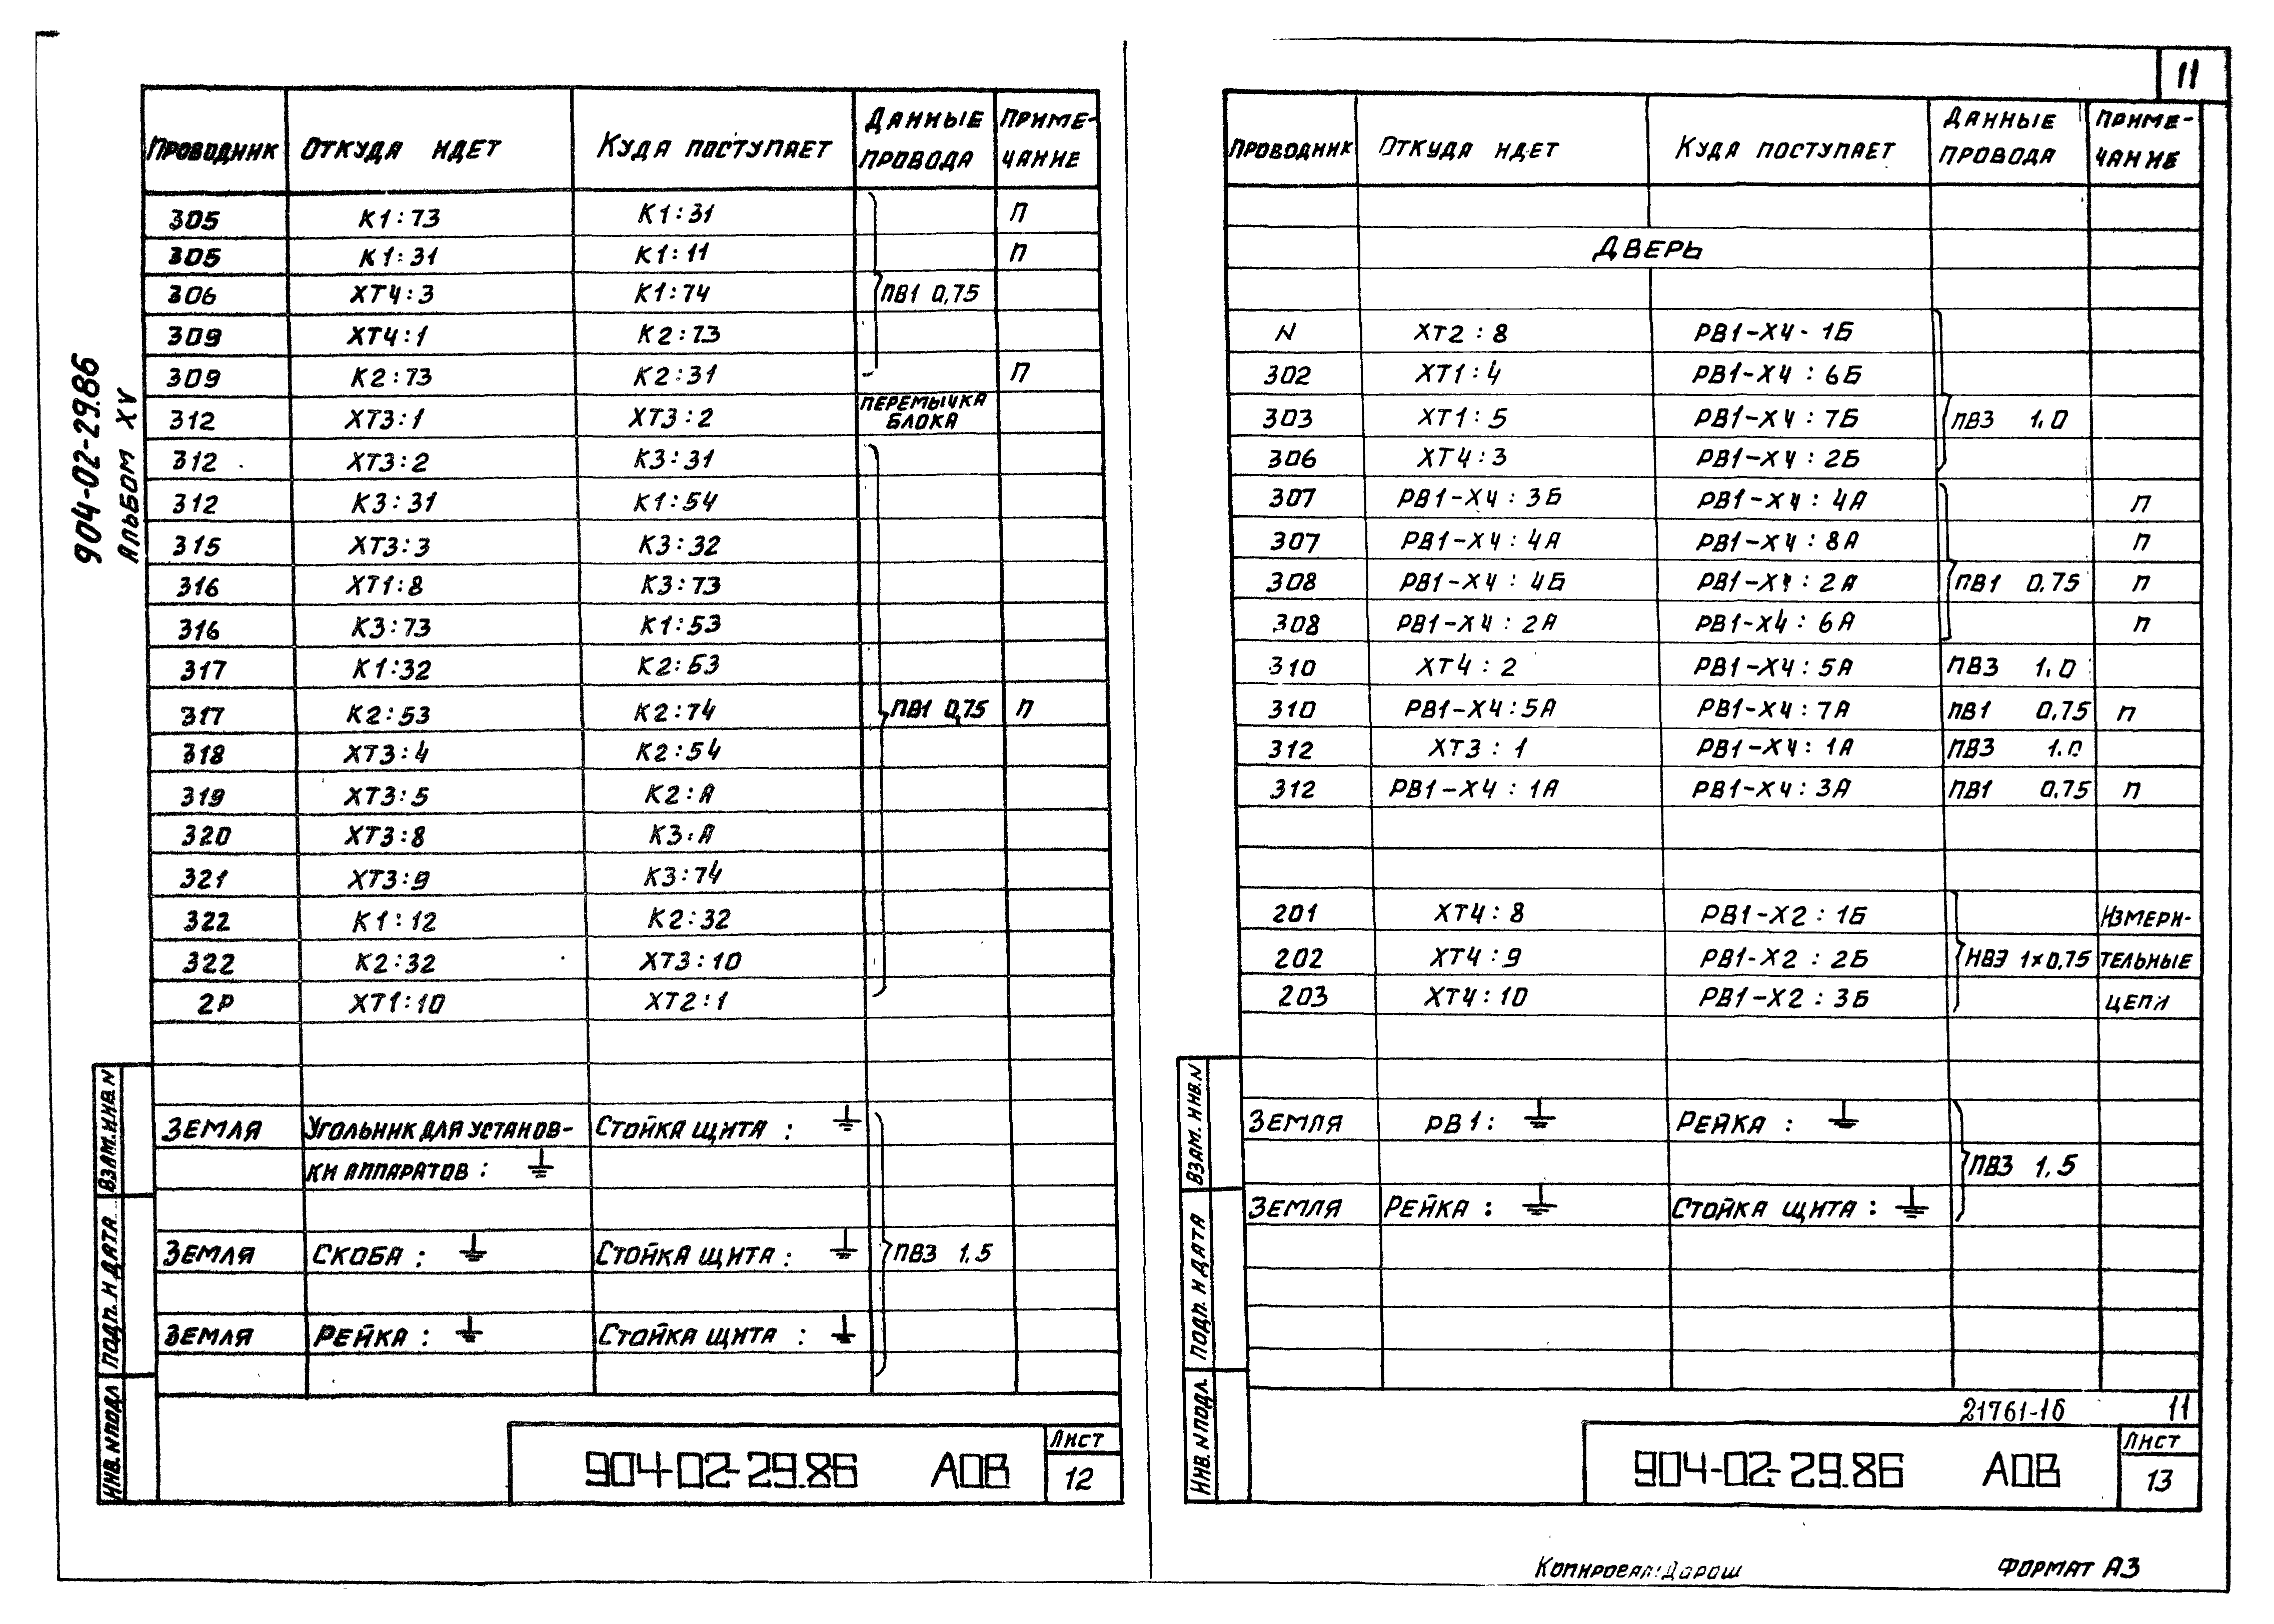 11
904-02-29.86
АЛЬБОМ XV
ПРОВОДНИК ОТКУДА ИДЕТ КУДА ПОСТУПАЕТ ДАННЫЕ ПРОВОДА ПРИМЕ-ЧАНИЕ
305 К1:73 К1:31 П
305 К1:31 К1:11 П
306 ХТ4:3 К1:74 ПВ1 0,75
309 ХТ4:1 К2:73
309 К2:73 К2:31 П
312 ХТ3:1 ХТ3:2 ПЕРЕМЫЧКА БЛОКА
312 ХТ3:2 К3:31
312 К3:31 К1:54
315 ХТ3:3 К3:32
316 ХТ1:8 К3:73
316 К3:73 К1:53
317 К1:32 К2:53
317 К2:53 К2:74 ПВ1 0,75 П
318 ХТ3:4 К2:54
319 ХТ3:5 К2:А
320 ХТ3:8 К3:А
321 ХТ3:9 К3:74
322 К1:12 К2:32
322 К2:32 ХТ3:10
2Р ХТ1:10 ХТ2:1
ЗЕМЛЯ УГОЛЬНИК ДЛЯ УСТАНОВ- СТОЙКА ЩИТА : ⏚
КИ АППАРАТОВ : ⏚
ЗЕМЛЯ СКОБА : ⏚ СТОЙКА ЩИТА : ⏚ ПВ3 1,5
ЗЕМЛЯ РЕЙКА : ⏚ СТОЙКА ЩИТА : ⏚
ВЗАМ. ИНВ. N
ПОДП. И ДАТА
ИНВ. N ПОДЛ
904-02-29.86 АОВ
ЛИСТ
12
ПРОВОДНИК ОТКУДА ИДЕТ КУДА ПОСТУПАЕТ ДАННЫЕ ПРОВОДА ПРИМЕ-ЧАНИЕ
ДВЕРЬ
N ХТ2 : 8 РВ1-Х4- 1Б
302 ХТ1 : 4 РВ1-Х4 : 6Б
303 ХТ1 : 5 РВ1-Х4 : 7Б ПВ3 1,0
306 ХТ4 : 3 РВ1-Х4 : 2Б
307 РВ1-Х4 : 3Б РВ1-Х4 : 4А П
307 РВ1-Х4 : 4А РВ1-Х4 : 8А П
308 РВ1-Х4 : 4Б РВ1-Х4 : 2А ПВ1 0,75 П
308 РВ1-Х4 : 2А РВ1-Х4 : 6А П
310 ХТ4 : 2 РВ1-Х4 : 5А ПВ3 1,0
310 РВ1-Х4:5А РВ1-Х4 : 7А ПВ1 0,75 П
312 ХТ3 : 1 РВ1-Х4 : 1А ПВ3 1.0
312 РВ1-Х4 : 1А РВ1-Х4 : 3А ПВ1 0.75 П
201 ХТ4 : 8 РВ1-Х2 : 1Б ИЗМЕРИ-
202 ХТ4 : 9 РВ1-Х2 : 2Б НВЭ 1×0,75 ТЕЛЬНЫЕ
203 ХТ4 : 10 РВ1-Х2 : 3Б ЦЕПИ
ЗЕМЛЯ РВ1 : ⏚ РЕЙКА : ⏚
ПВ3 1,5
ЗЕМЛЯ РЕЙКА : ⏚ СТОЙКА ЩИТА : ⏚
ВЗАМ. ИНВ. N
ПОДП. И ДАТА
ИНВ. N ПОДЛ.
21761-16 11
904-02-29.86 АОВ
ЛИСТ
13
КОПИРОВАЛ: ДАРОШ ФОРМАТ А3